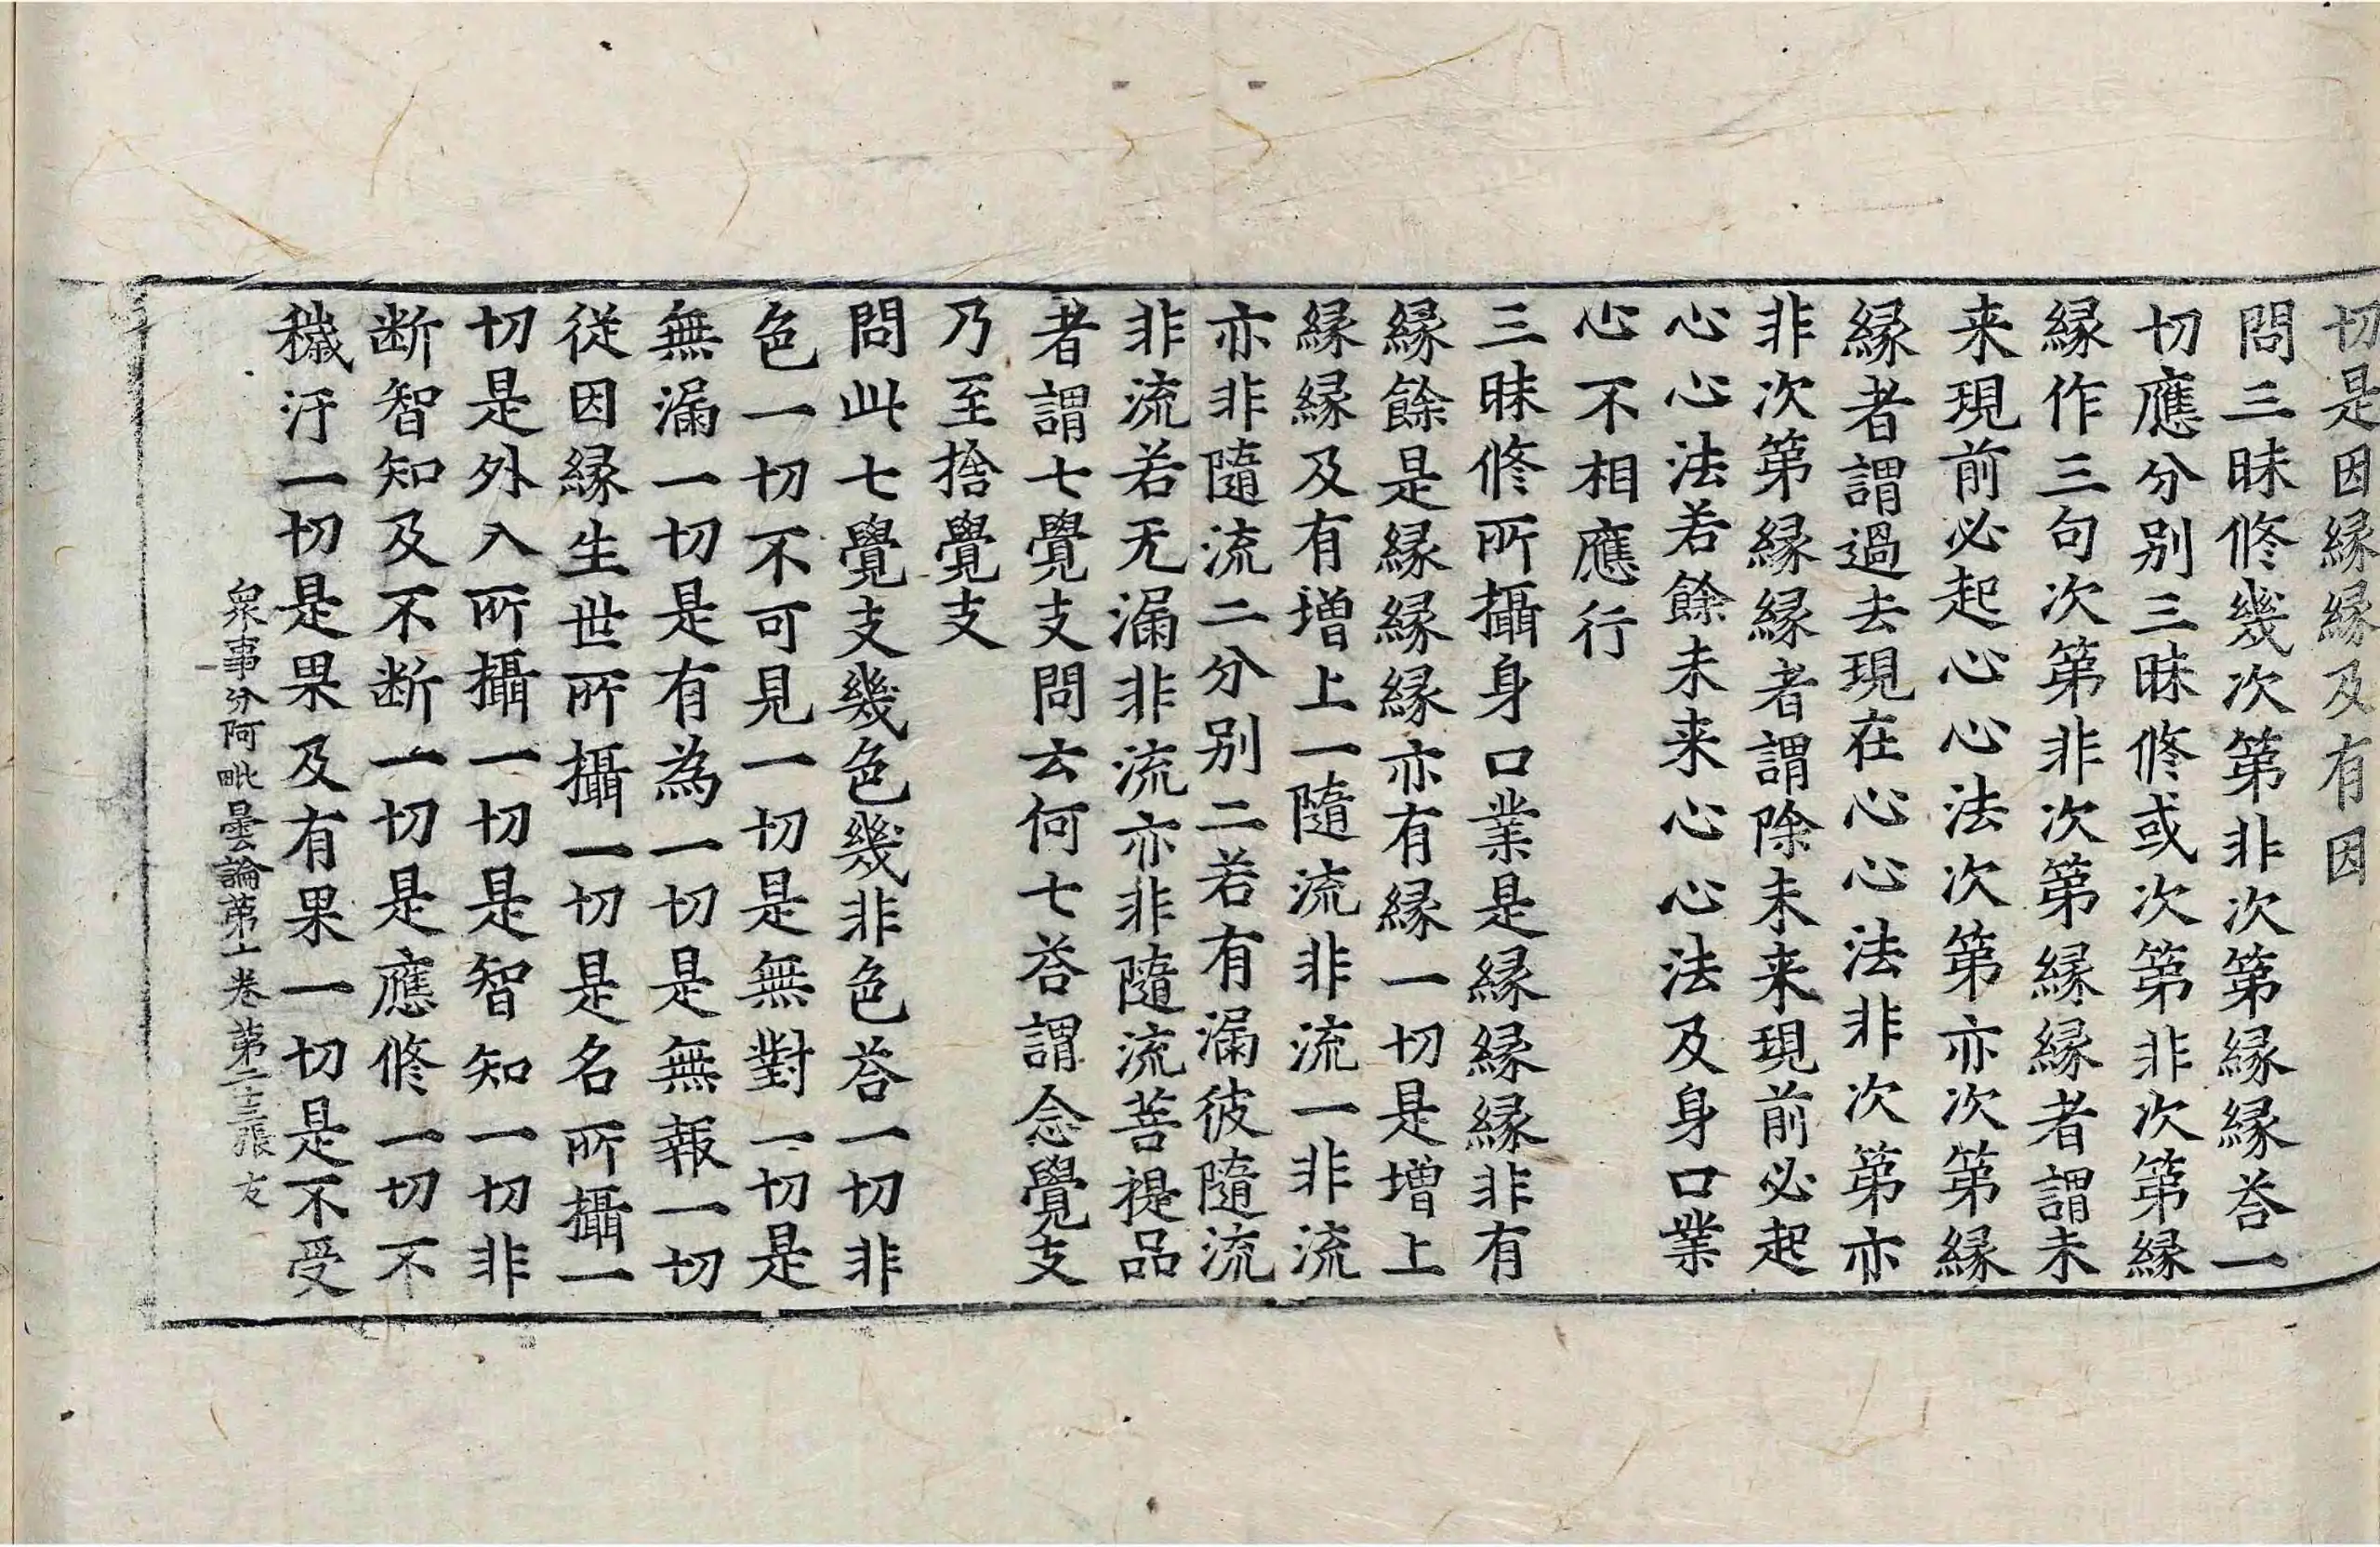 切是因縁縁及有因
問三昧修幾次第非次第縁縁荅一
切應分別三昧修或次第非次第縁
縁作三句次第非次第縁縁者謂未
来現前必起心心法次第亦次第縁
縁者謂過去現在心心法非次第亦
非次第縁縁者謂除未来現前必起
心心法若餘未来心心法及身口業
心不相應行
三昧修所攝身口業是縁縁縁非有
縁餘是縁縁縁亦有縁一切是增上
縁縁及有增上一隨流非流一非流
亦非隨流二分別二若有漏彼隨流
非流若无漏非流亦非隨流菩提品
者謂七覺支問云何七荅謂念覺支
乃至捨覺支
問此七覺支幾色幾非色荅一切非
色一切不可見一切是無對一切是
無漏一切是有為一切是無報一切
從因縁生世所攝一切是名所攝一
切是外入所攝一切是智知一切非
断智知及不断一切是應修一切不
穢汙一切是果及有果一切是不受
衆事分阿毗曇論第十卷 第二十三張 友